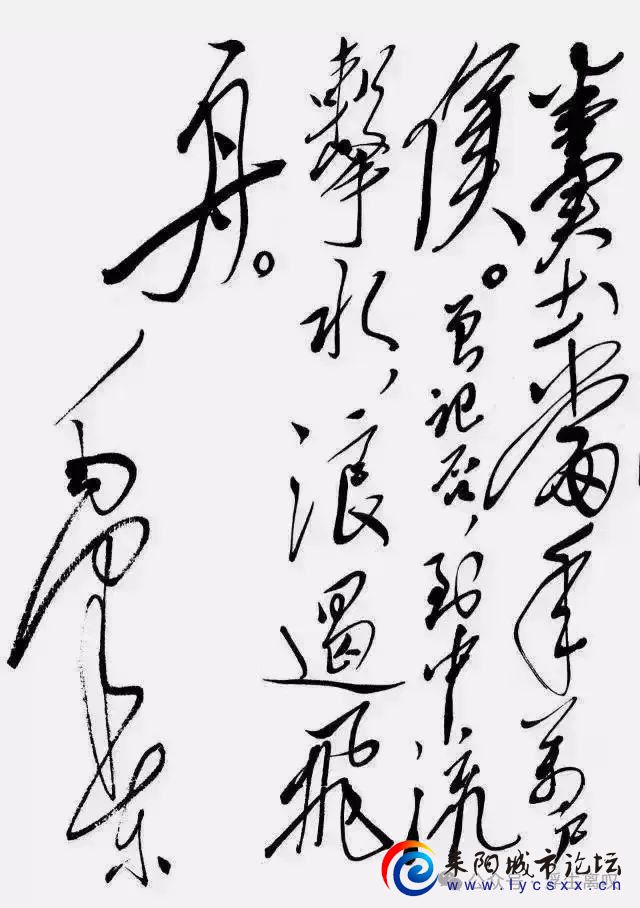 粪土当年万户
侯。曾记否，到中流
擊水，浪遏飞
舟。
毛泽东
耒阳城市论坛
www.lycsxx.cn
公众号·浮生离叹